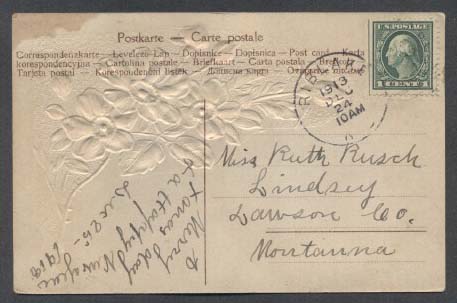 Postkarte — Carte postale
Correspondenzkarte - Levelező-Lap - Dopisnice - Dopisnica - Post card - Karta
korespondencyjna - Cartolina postale - Briefkaart - Carta postala - Brefkort
Tarjeta postal - Korespondenční lístek
U.S. POSTAGE
1 CENT 1
1913
DEC
24
10 AM
Miss Ruth Rusch
Lindsey
Dawson Co.
Montanna
Merry
day
& a Happy
New year
Dec 25 -